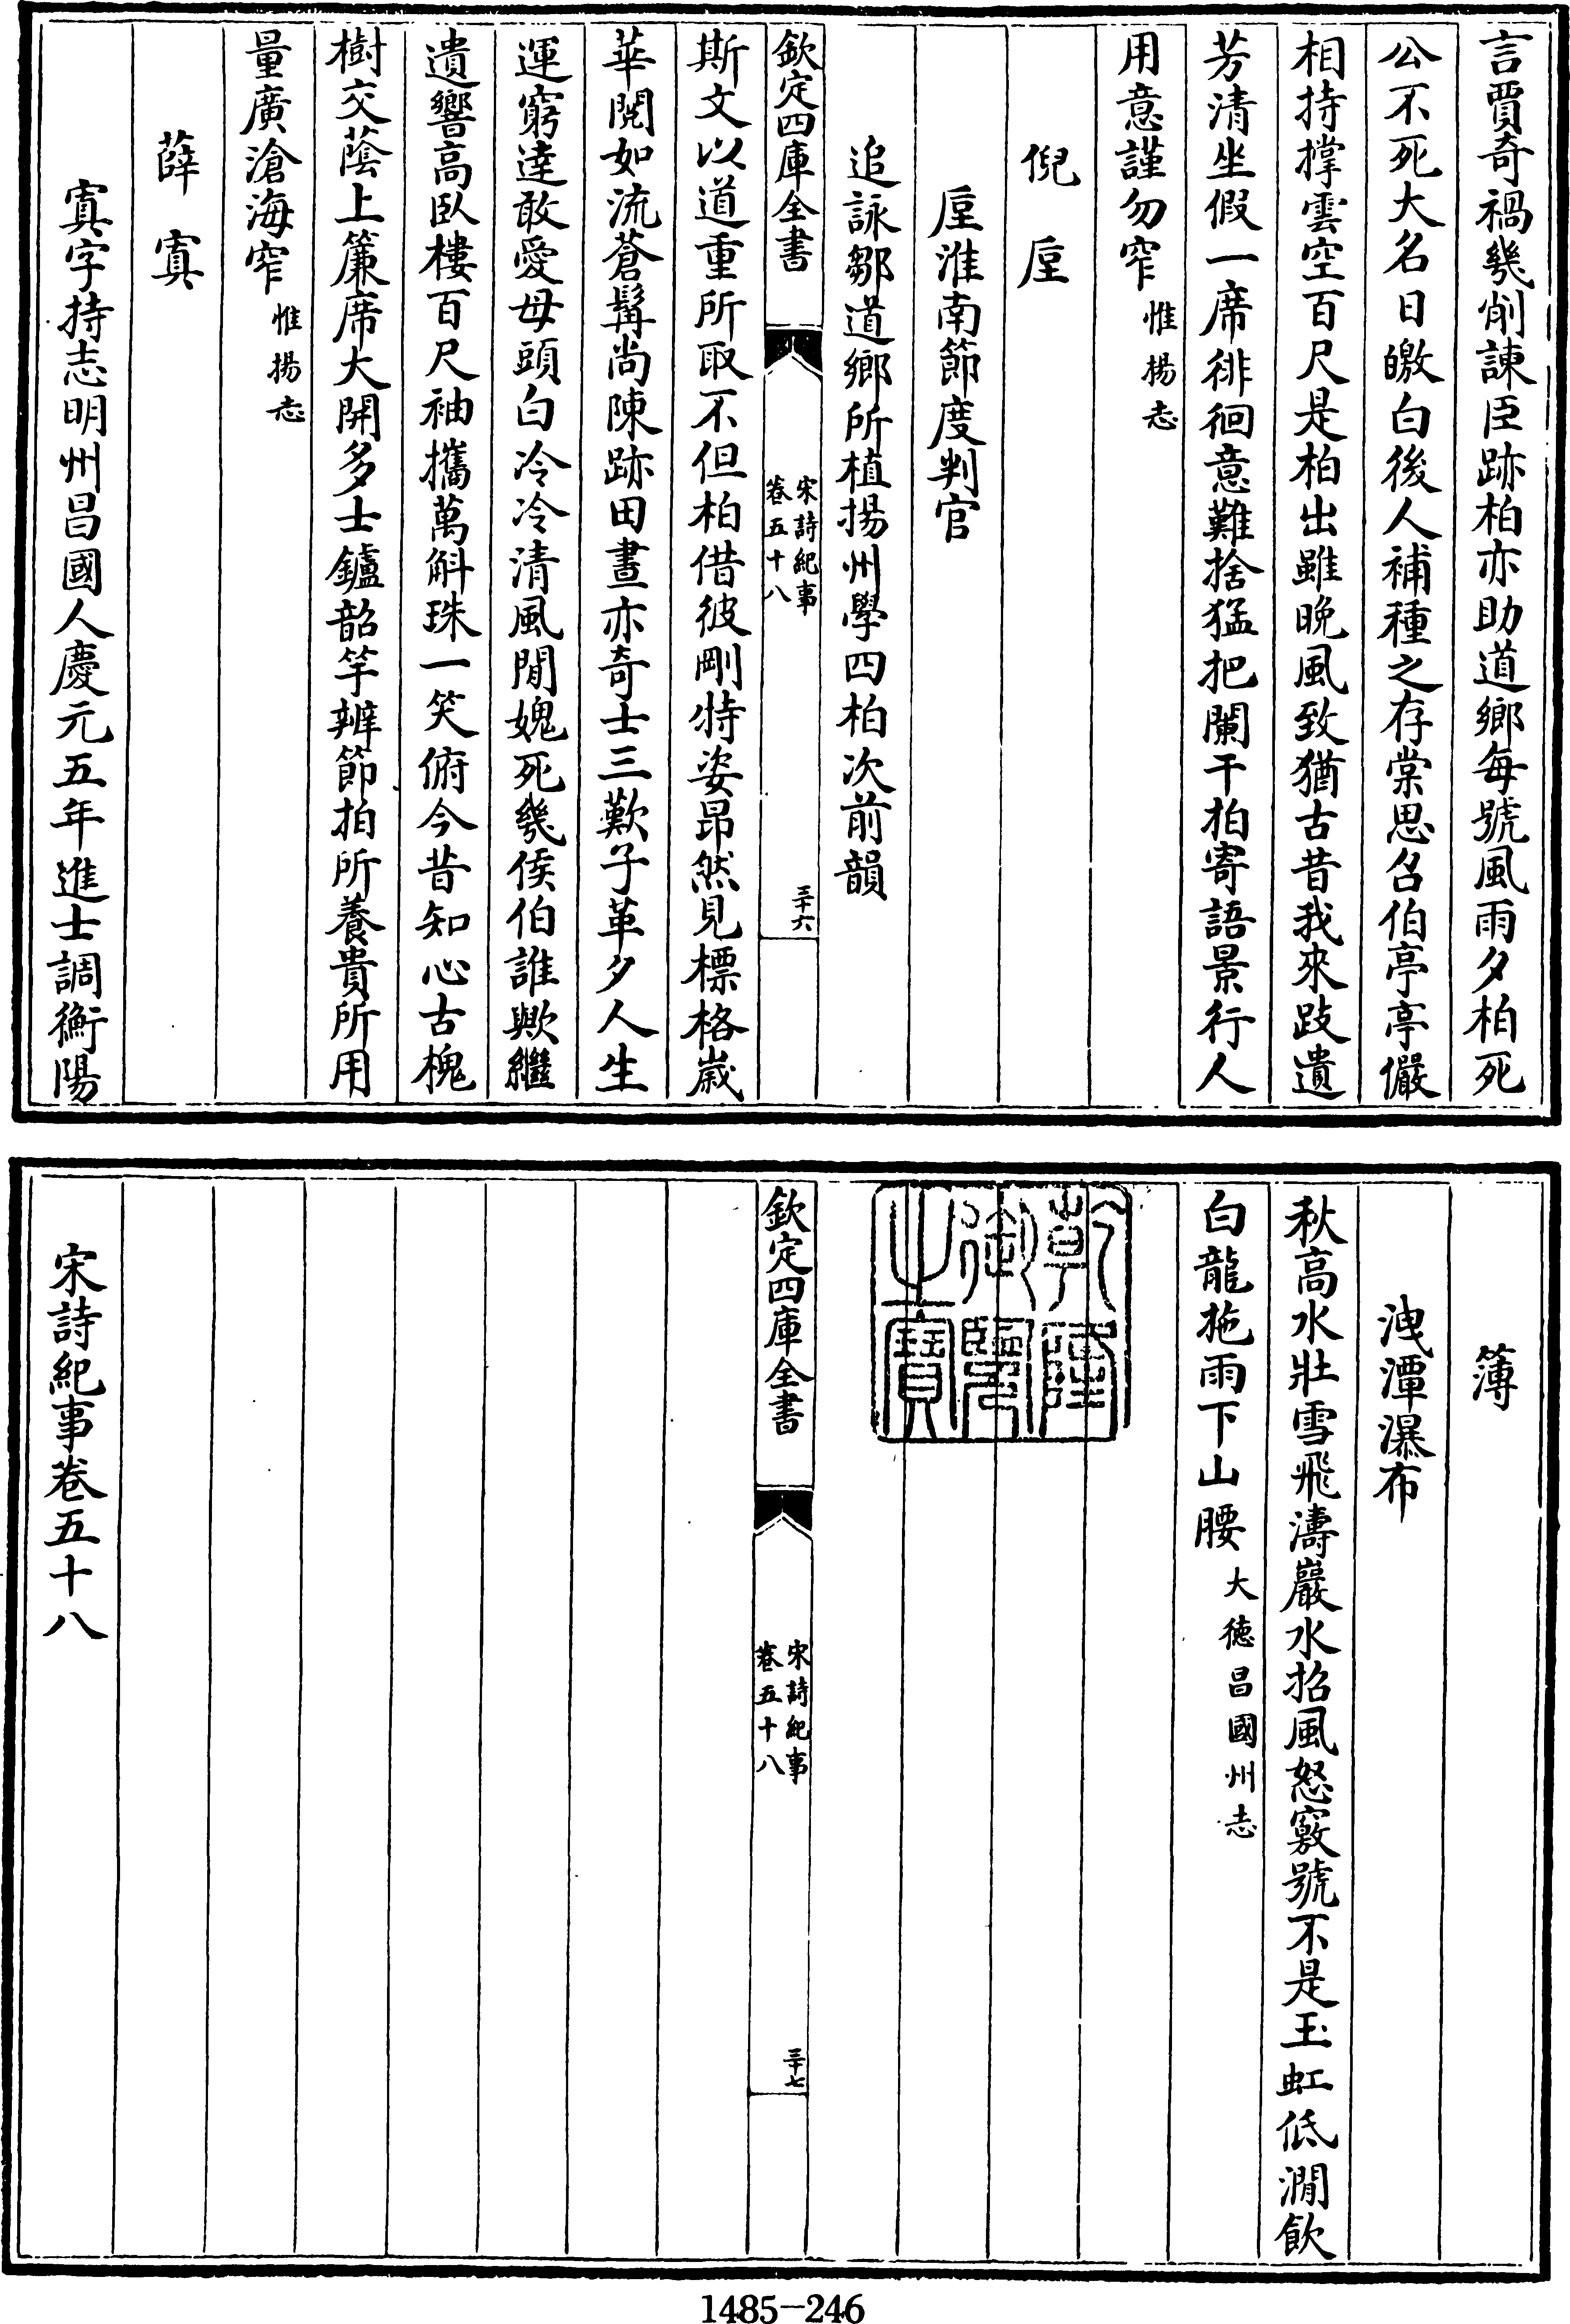 言賈奇禍幾削諫臣跡柏亦助道鄉每號風雨夕柏死
公不死大名日皦白後人補種之存棠思召伯亭亭儼
相持撑雲空百尺是柏出雖晚風致猶古昔我來跂遺
芳清坐假一席徘徊意難捨猛把闌干拍寄語景行人
用意謹勿窄惟揚志
倪垕
垕淮南節度判官
追詠鄒道鄉所植揚州學四柏次前韻
欽定四庫全書
宋詩紀事
卷五十八
三十六
斯文以道重所取不但柏借彼剛特姿昂然見標格歲
華閱如流蒼髯尚陳跡田晝亦奇士三歎子革夕人生
運窮達敢愛母頭白冷冷清風閒媿死幾侯伯誰歟繼
遺響高臥樓百尺袖攜萬斛珠一笑俯今昔知心古槐
樹交蔭上簾席大開多士鑪韶竽辨節拍所養貴所用
量廣滄海窄惟揚志
薛寘
寘字持志明州昌國人慶元五年進士調衡陽
簿
洩潭瀑布
秋高水壯雪飛濤巖水招風怒竅號不是玉虹低澗飲
白龍拖雨下山腰大德昌國州志
乾隆御覽之寶
欽定四庫全書
宋詩紀事
卷五十八
三十七
宋詩紀事卷五十八
1485-246